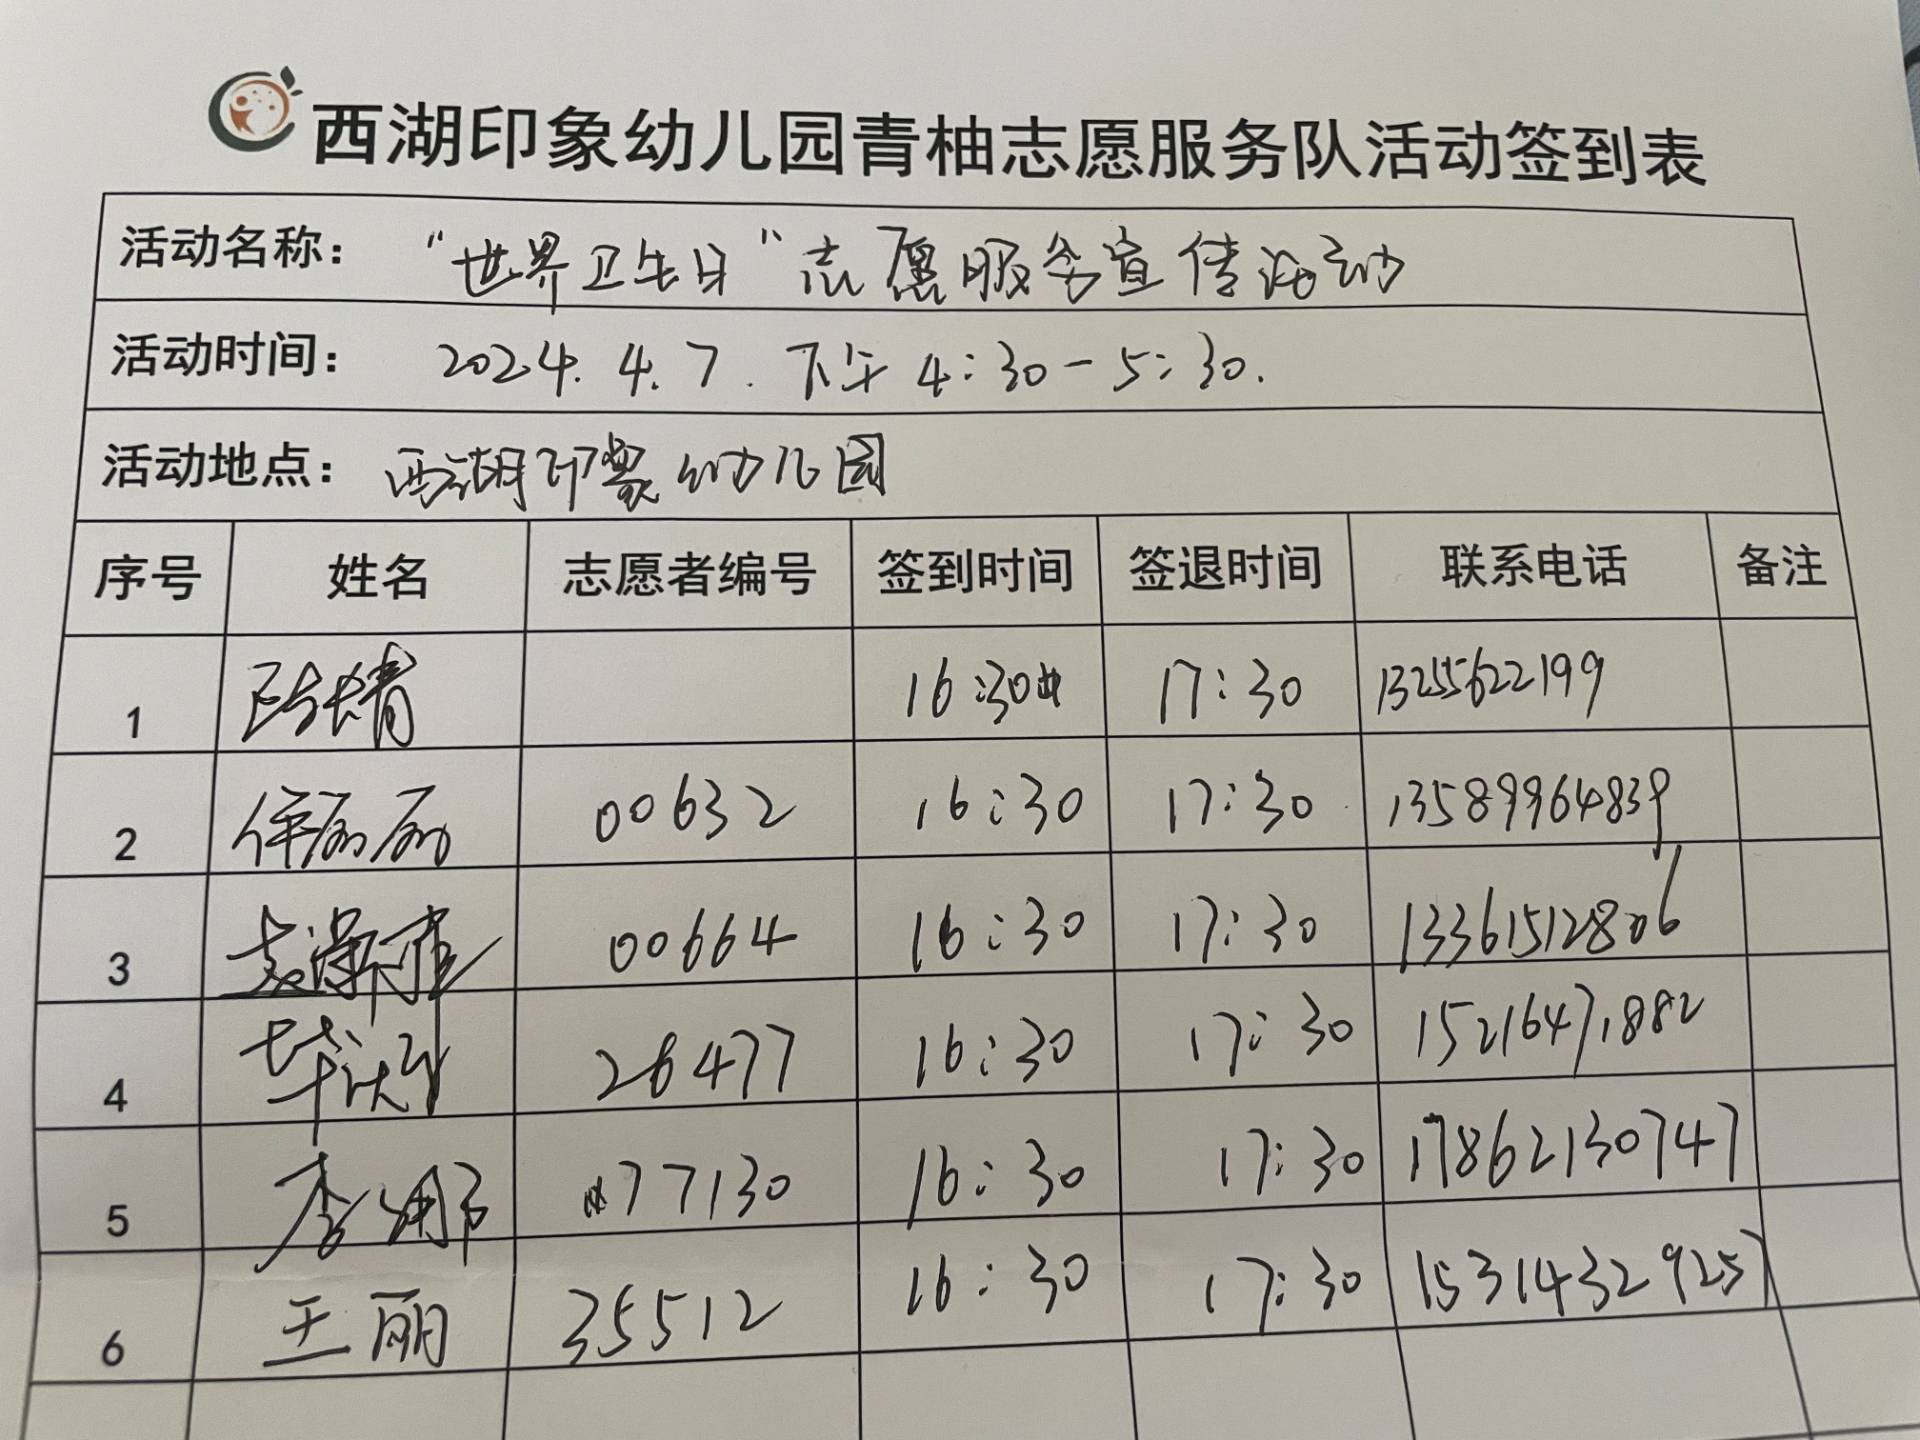 西湖印象幼儿园青柚志愿服务队活动签到表
活动名称： “世界卫生日”志愿服务宣传活动
活动时间： 2024.4.7. 下午 4:30-5:30.
活动地点： 西湖印象幼儿园
序号 姓名 志愿者编号 签到时间 签退时间 联系电话 备注
1 16:30 17:30 13255622199
2 00632 16:30 17:30 13589964839
3 00664 16:30 17:30 13361512806
4 26477 16:30 17:30 15216471882
5 李娜 77130 16:30 17:30 17862130747
6 王丽 35512 16:30 17:30 15314329257